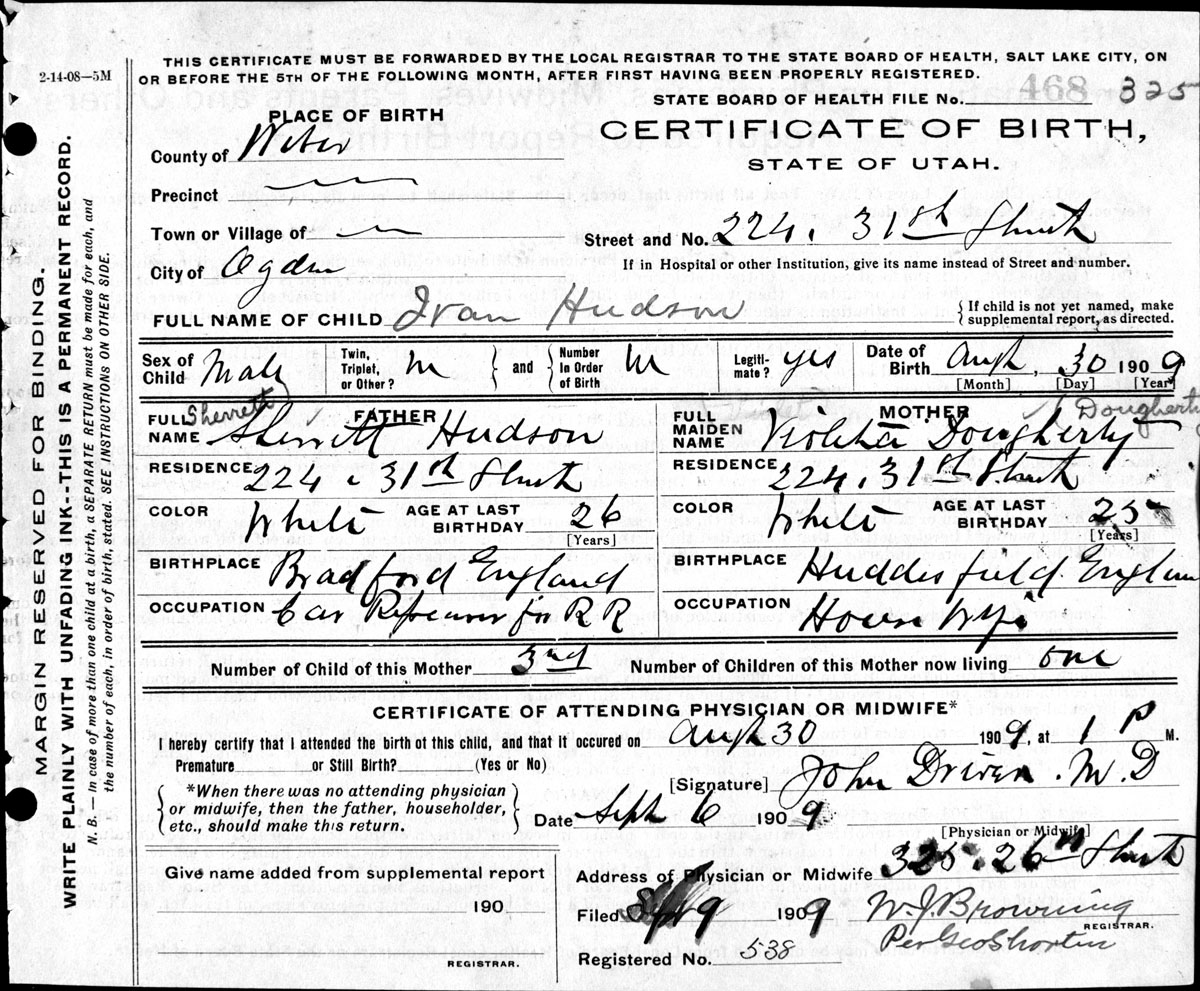 2-14-08—5M
THIS CERTIFICATE MUST BE FORWARDED BY THE LOCAL REGISTRAR TO THE STATE BOARD OF HEALTH, SALT LAKE CITY, ON
OR BEFORE THE 5TH OF THE FOLLOWING MONTH, AFTER FIRST HAVING BEEN PROPERLY REGISTERED.
STATE BOARD OF HEALTH FILE No. 468 325
PLACE OF BIRTH
CERTIFICATE OF BIRTH,
STATE OF UTAH.
County of Weber
Precinct
Town or Village of
Street and No. 224. 31st Street
City of Ogden
If in Hospital or other Institution, give its name instead of Street and number.
FULL NAME OF CHILD Ivan Hudson
{ If child is not yet named, make
supplemental report, as directed.
Sex of Child Male
Twin, Triplet, or Other? } and { Number In Order of Birth
Legiti- mate? yes
Date of Birth Augt, 30 1909
[Month] [Day] [Year]
FATHER
FULL NAME Sherrett Sherritt Hudson
RESIDENCE 224. 31st Street
COLOR White AGE AT LAST BIRTHDAY 26
[Years]
BIRTHPLACE Bradford England
OCCUPATION Car Repairer for R R
MOTHER
(Dougherty
FULL MAIDEN NAME Dougherty
RESIDENCE 224. 31st Street
COLOR White AGE AT LAST BIRTHDAY 25
[Years]
BIRTHPLACE England
OCCUPATION House Wife
Number of Child of this Mother 3rd Number of Children of this Mother now living one
CERTIFICATE OF ATTENDING PHYSICIAN OR MIDWIFE*
I hereby certify that I attended the birth of this child, and that it occured on Augt 30 1909, at 1 P M.
Premature or Still Birth? (Yes or No)
[Signature] John Driver. M D
{ *When there was no attending physician
or midwife, then the father, householder,
etc., should make this return. }
Date Sept 6 1909
[Physician or Midwife]
Give name added from supplemental report
190
REGISTRAR.
Address of Physician or Midwife 325. 26th Street
Filed 9 1909 W. J. Browning
REGISTRAR.
Per Geo Shorten
Registered No. 538
MARGIN RESERVED FOR BINDING.
WRITE PLAINLY WITH UNFADING INK--THIS IS A PERMANENT RECORD.
N. B.—In case of more than one child at a birth, a SEPARATE RETURN must be made for each, and
the number of each, in order of birth, stated. SEE INSTRUCTIONS ON OTHER SIDE.